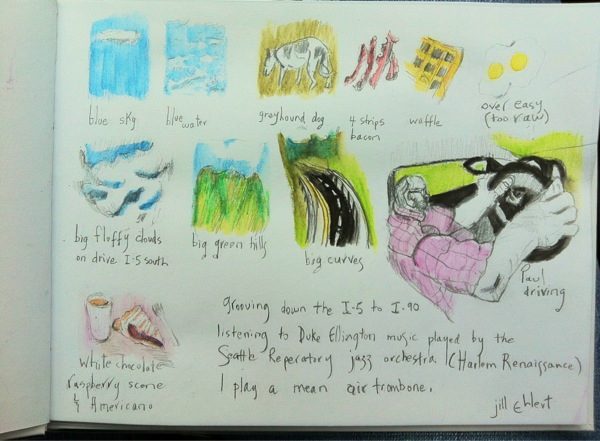 blue sky
blue water
greyhound dog
4 strips
bacon
waffle
over easy
(too raw)
big fluffy clouds
on drive I-5 south
big green hills
big curves
Paul
driving
white chocolate
raspberry scone
& Americano
grooving down the I-5 to I-90
listening to Duke Ellington music played by the
Seattle Reperatory jazz orchestra (Harlem Renaissance)
I play a mean air trombone.
jill Ehlert